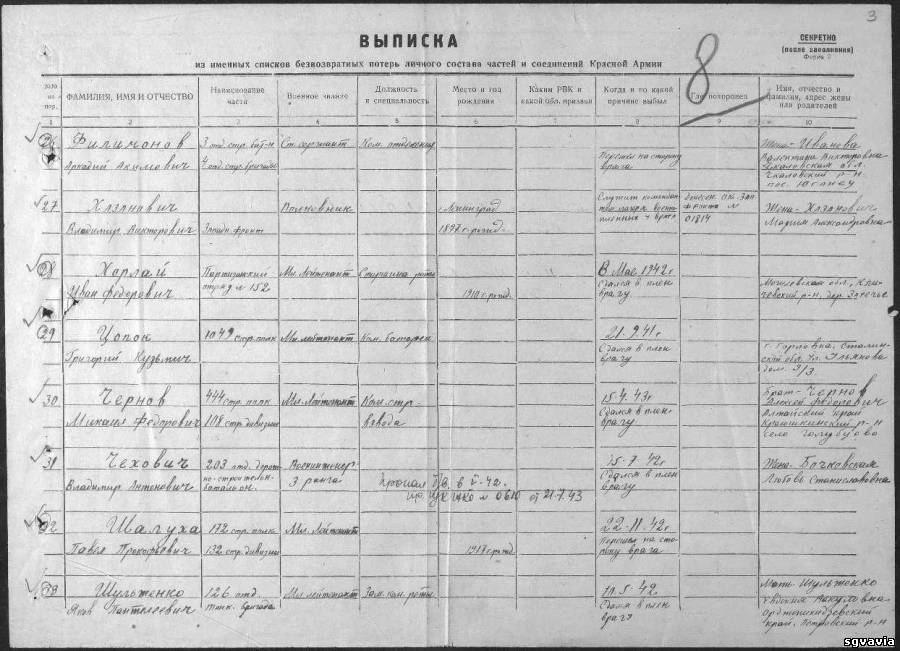 3
ВЫПИСКА
из именных списков безвозвратных потерь личного состава частей и соединений Красной Армии
СЕКРЕТНО
(после заполнения)
8
по пор.
ФАМИЛИЯ, ИМЯ И ОТЧЕСТВО
Наименование части
Военное звание
Должность и специальность
Место и год рождения
Каким РВК и какой обл. призван
Когда и по какой причине выбыл
Где похоронен
Имя, отчество и фамилия, адрес жены или родителей
1 2 3 4 5 6 7 8 9 10
26 Филимонов 3 отд. стр. бат-н Ст. сержант Ком. отделения Жена - Иванова
Аркадий Акимович 4 отд. стр. бригады Перешел на сторону врага Валентина Викторовна
Чкаловская обл.
Чкаловский р-н
пос.
27 Хазанович Полковник г. Ленинград Служит комендан- Жена - Хазанович
Владимир Викторович Западн. фронт 1897 г. рожд. 01814 Мария Александровна
28 Херлай Партизанский Мл. лейтенант Старшина роты В Мае 1942 г.
Иван Федорович отряд № 152 1910 г. рожд. Сдался в плен врагу Могилевская обл., Кли-
чевский р-н, дер. Заречье
29 Цопок 1049 стр. полк Мл. лейтенант Ком. батареи 21-9.41 г.
Григорий Кузьмич Сдался в плен врагу г. Горловка, Сталин-
ской обл. ул. Ульянова
дом. 9/3.
30 Чернов 444 стр. полк Мл. лейтенант Ком. стр. взвода 15-4.43 г. Брат - Чернов
Михаил Федорович 108 стр. дивизии Сдался в плен врагу Алексей Федорович
Алтайский край
Краюшкинский р-н
село Голубцово
31 Чехович 203 отд. Воениженер 15-7.42 г. Жена - Бочковская
Владимир Антонович но-строительн. батальон. 3 ранга Сдался в плен врагу Любовь Станиславовна
от 21.7.43
32 Шалуха 172 стр. полк Мл. лейтенант 22-11.42 г.
Павел Прокофьевич 132 стр. дивизии 1917 г. рожд. Перешел на сто-
рону врага
33 Шультенко 126 отд. Мл. лейтенант Зам. ком. роты 11.5-42 Мать - Шультенко
Яков Пантелеевич танк. бригада Сдался в плен врагу Евдокия Акуловна
Орджоникидзевский
край, Петровский р-н
sgvavia